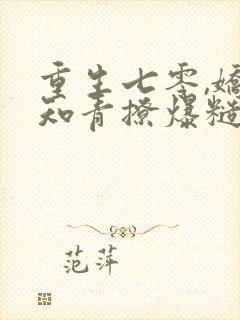 重生七零,娇
知青撩爆糙
范萍